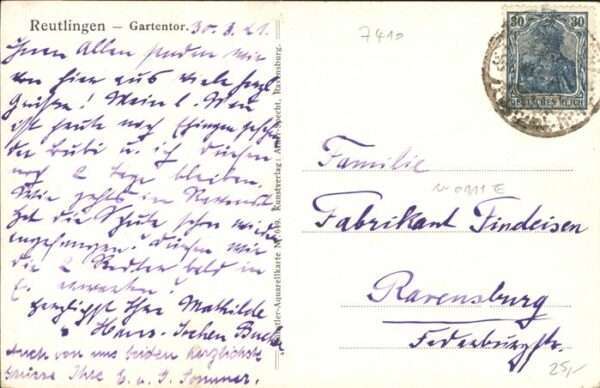 Reutlingen – Gartentor. 30.3.21.
Ihnen Allen senden wir
von hier aus viele herzl.
Grüsse! Mein l. Mann
ist heute nach Ehingen
der Bubi u. ich dürfen
noch 2 Tage bleiben.
Wie gehts in Ravensb.
Hat die Schule schon wieder
angefangen? Dürfen wir
die 2 bald in
E. erwarten?
Herzlichst Ihre Mathilde
u. Hans-Jochen
Auch von uns beiden herzlichste
Grüsse Ihre E. u. J. Sommer.
Künstler-Aquarellkarte Nr. 649. Kunstverlag: Ravensburg.
7410
30 30
DEUTSCHES REICH
Familie
Fabrikant Findeisen
Ravensburg
Federburgstr.
25,-